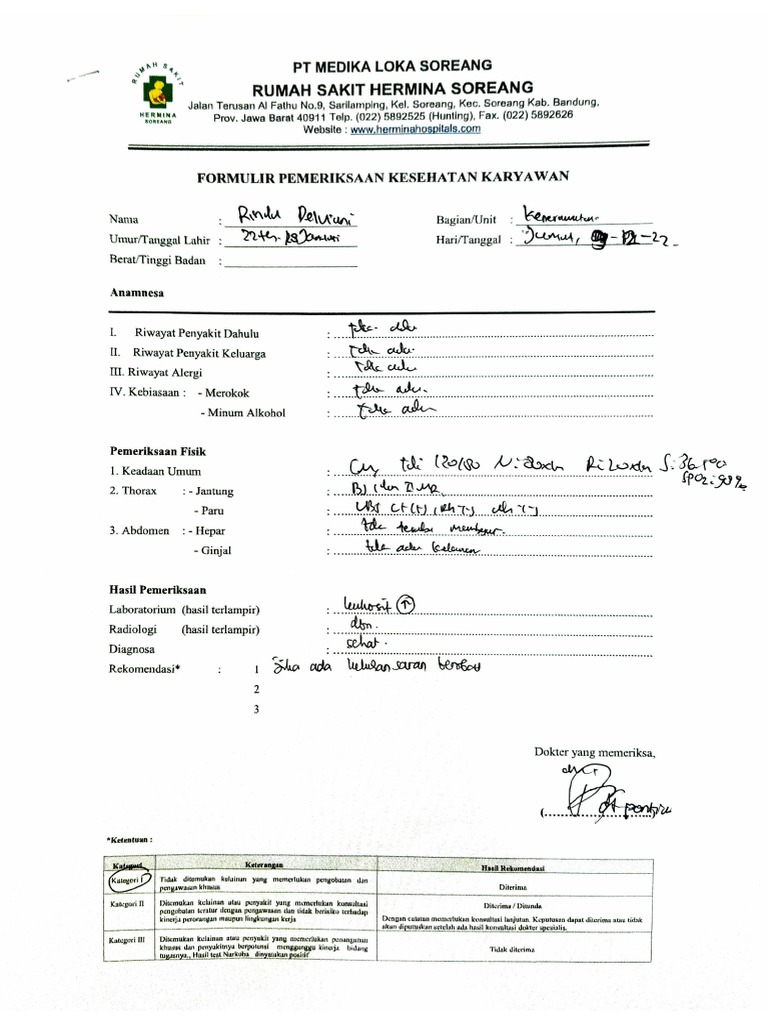 RUMAH SAKIT
HERMINA
SOREANG
PT MEDIKA LOKA SOREANG
RUMAH SAKIT HERMINA SOREANG
Jalan Terusan Al Fathu No.9, Sarilamping, Kel. Soreang, Kec. Soreang Kab. Bandung,
Prov. Jawa Barat 40911 Telp. (022) 5892525 (Hunting), Fax. (022) 5892626
Website : www.herminahospitals.com
FORMULIR PEMERIKSAAN KESEHATAN KARYAWAN
Nama : Rindu Bagian/Unit :
Umur/Tanggal Lahir : 22 th. Januari Hari/Tanggal : Jumat, -22
Berat/Tinggi Badan :
Anamnesa
I. Riwayat Penyakit Dahulu : tdk ada
II. Riwayat Penyakit Keluarga : tdk ada
III. Riwayat Alergi : tdk ada
IV. Kebiasaan : - Merokok : tdk ada
- Minum Alkohol : tdk ada
Pemeriksaan Fisik
1. Keadaan Umum : CM 120/80
2. Thorax : - Jantung :
- Paru :
3. Abdomen : - Hepar :
- Ginjal : ada kelainan
Hasil Pemeriksaan
Laboratorium (hasil terlampir) : leukosit ↑
Radiologi (hasil terlampir) : dbn.
Diagnosa : sehat.
Rekomendasi* : 1 Jika ada keluhan saran berobat
2
3
Dokter yang memeriksa,
*Ketentuan :
Kategori Keterangan Hasil Rekomendasi
Kategori I Tidak ditemukan kelainan yang memerlukan pengobatan dan
pengawasan khusus Diterima
Kategori II Ditemukan kelainan atau penyakit yang memerlukan konsultasi Diterima / Ditunda
pengobatan teratur dengan pengawasan dan tidak berisiko terhadap
kinerja perorangan maupun lingkungan kerja Dengan catatan memerlukan konsultasi lanjutan. Keputusan dapat diterima atau tidak
akan diputuskan setelah ada hasil konsultasi dokter spesialis.
Kategori III Ditemukan kelainan atau penyakit yang memerlukan penanganan
khusus dan penyakitnya berpotensi mengganggu kinerja bidang
tugasnya., Hasil test Narkoba dinyatakan positif Tidak diterima